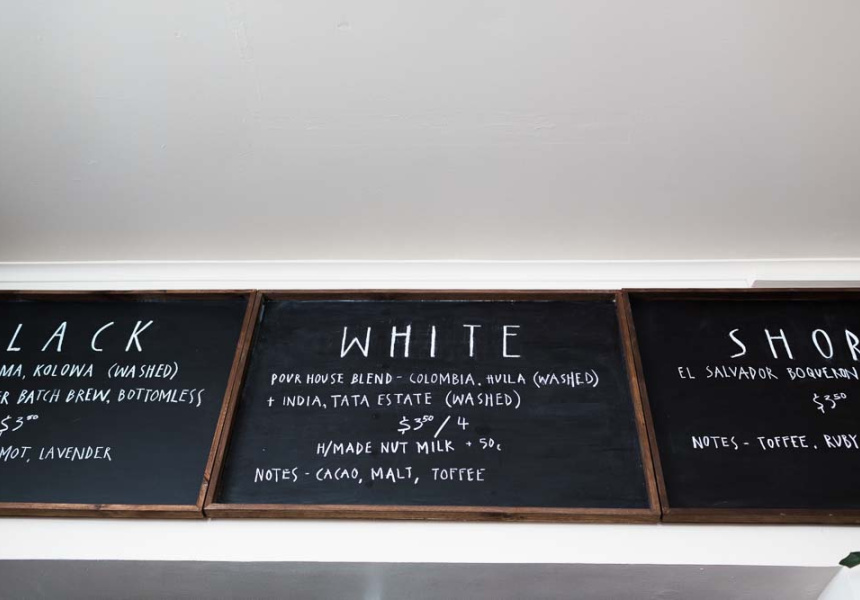 LACK
MA, KOLOWA (WASHED)
ER BATCH BREW, BOTTOMLESS
$3⁵⁰
MOT, LAVENDER
WHITE
POUR HOUSE BLEND - COLOMBIA, HUILA (WASHED)
+ INDIA, TATA ESTATE (WASHED)
$3⁵⁰/4
H/MADE NUT MILK + 50c
NOTES - CACAO, MALT, TOFFEE
SHOR
EL SALVADOR BOQUERON
$3⁵⁰
NOTES - TOFFEE, RUBY